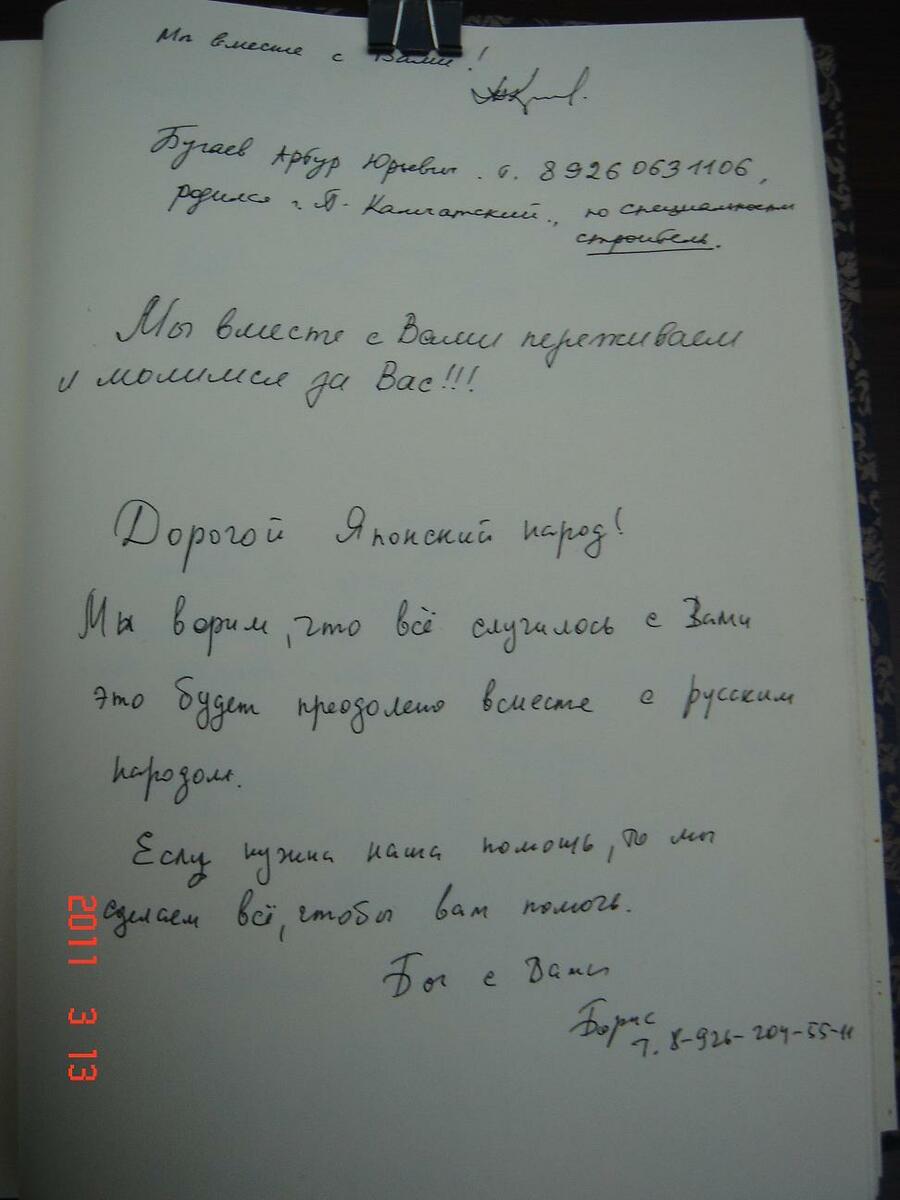 Мы вместе с Вами!
Бугаев Арбур Юрьевич. т. 8 926 063 1106,
родился г. П-Камчатский., по специальности
строитель.
Мы вместе с Вами переживаем
и молимся за Вас!!!
Дорогой Японский народ!
Мы ворим, что всё случилось с Вами
это будет преодолено всместе с русским
народом.
Если нужна наша помощь, то мы
сделаем всё, чтобы вам помочь.
Бог с Вами
Борис
т. 8-926-204-55-11
2011 3 13